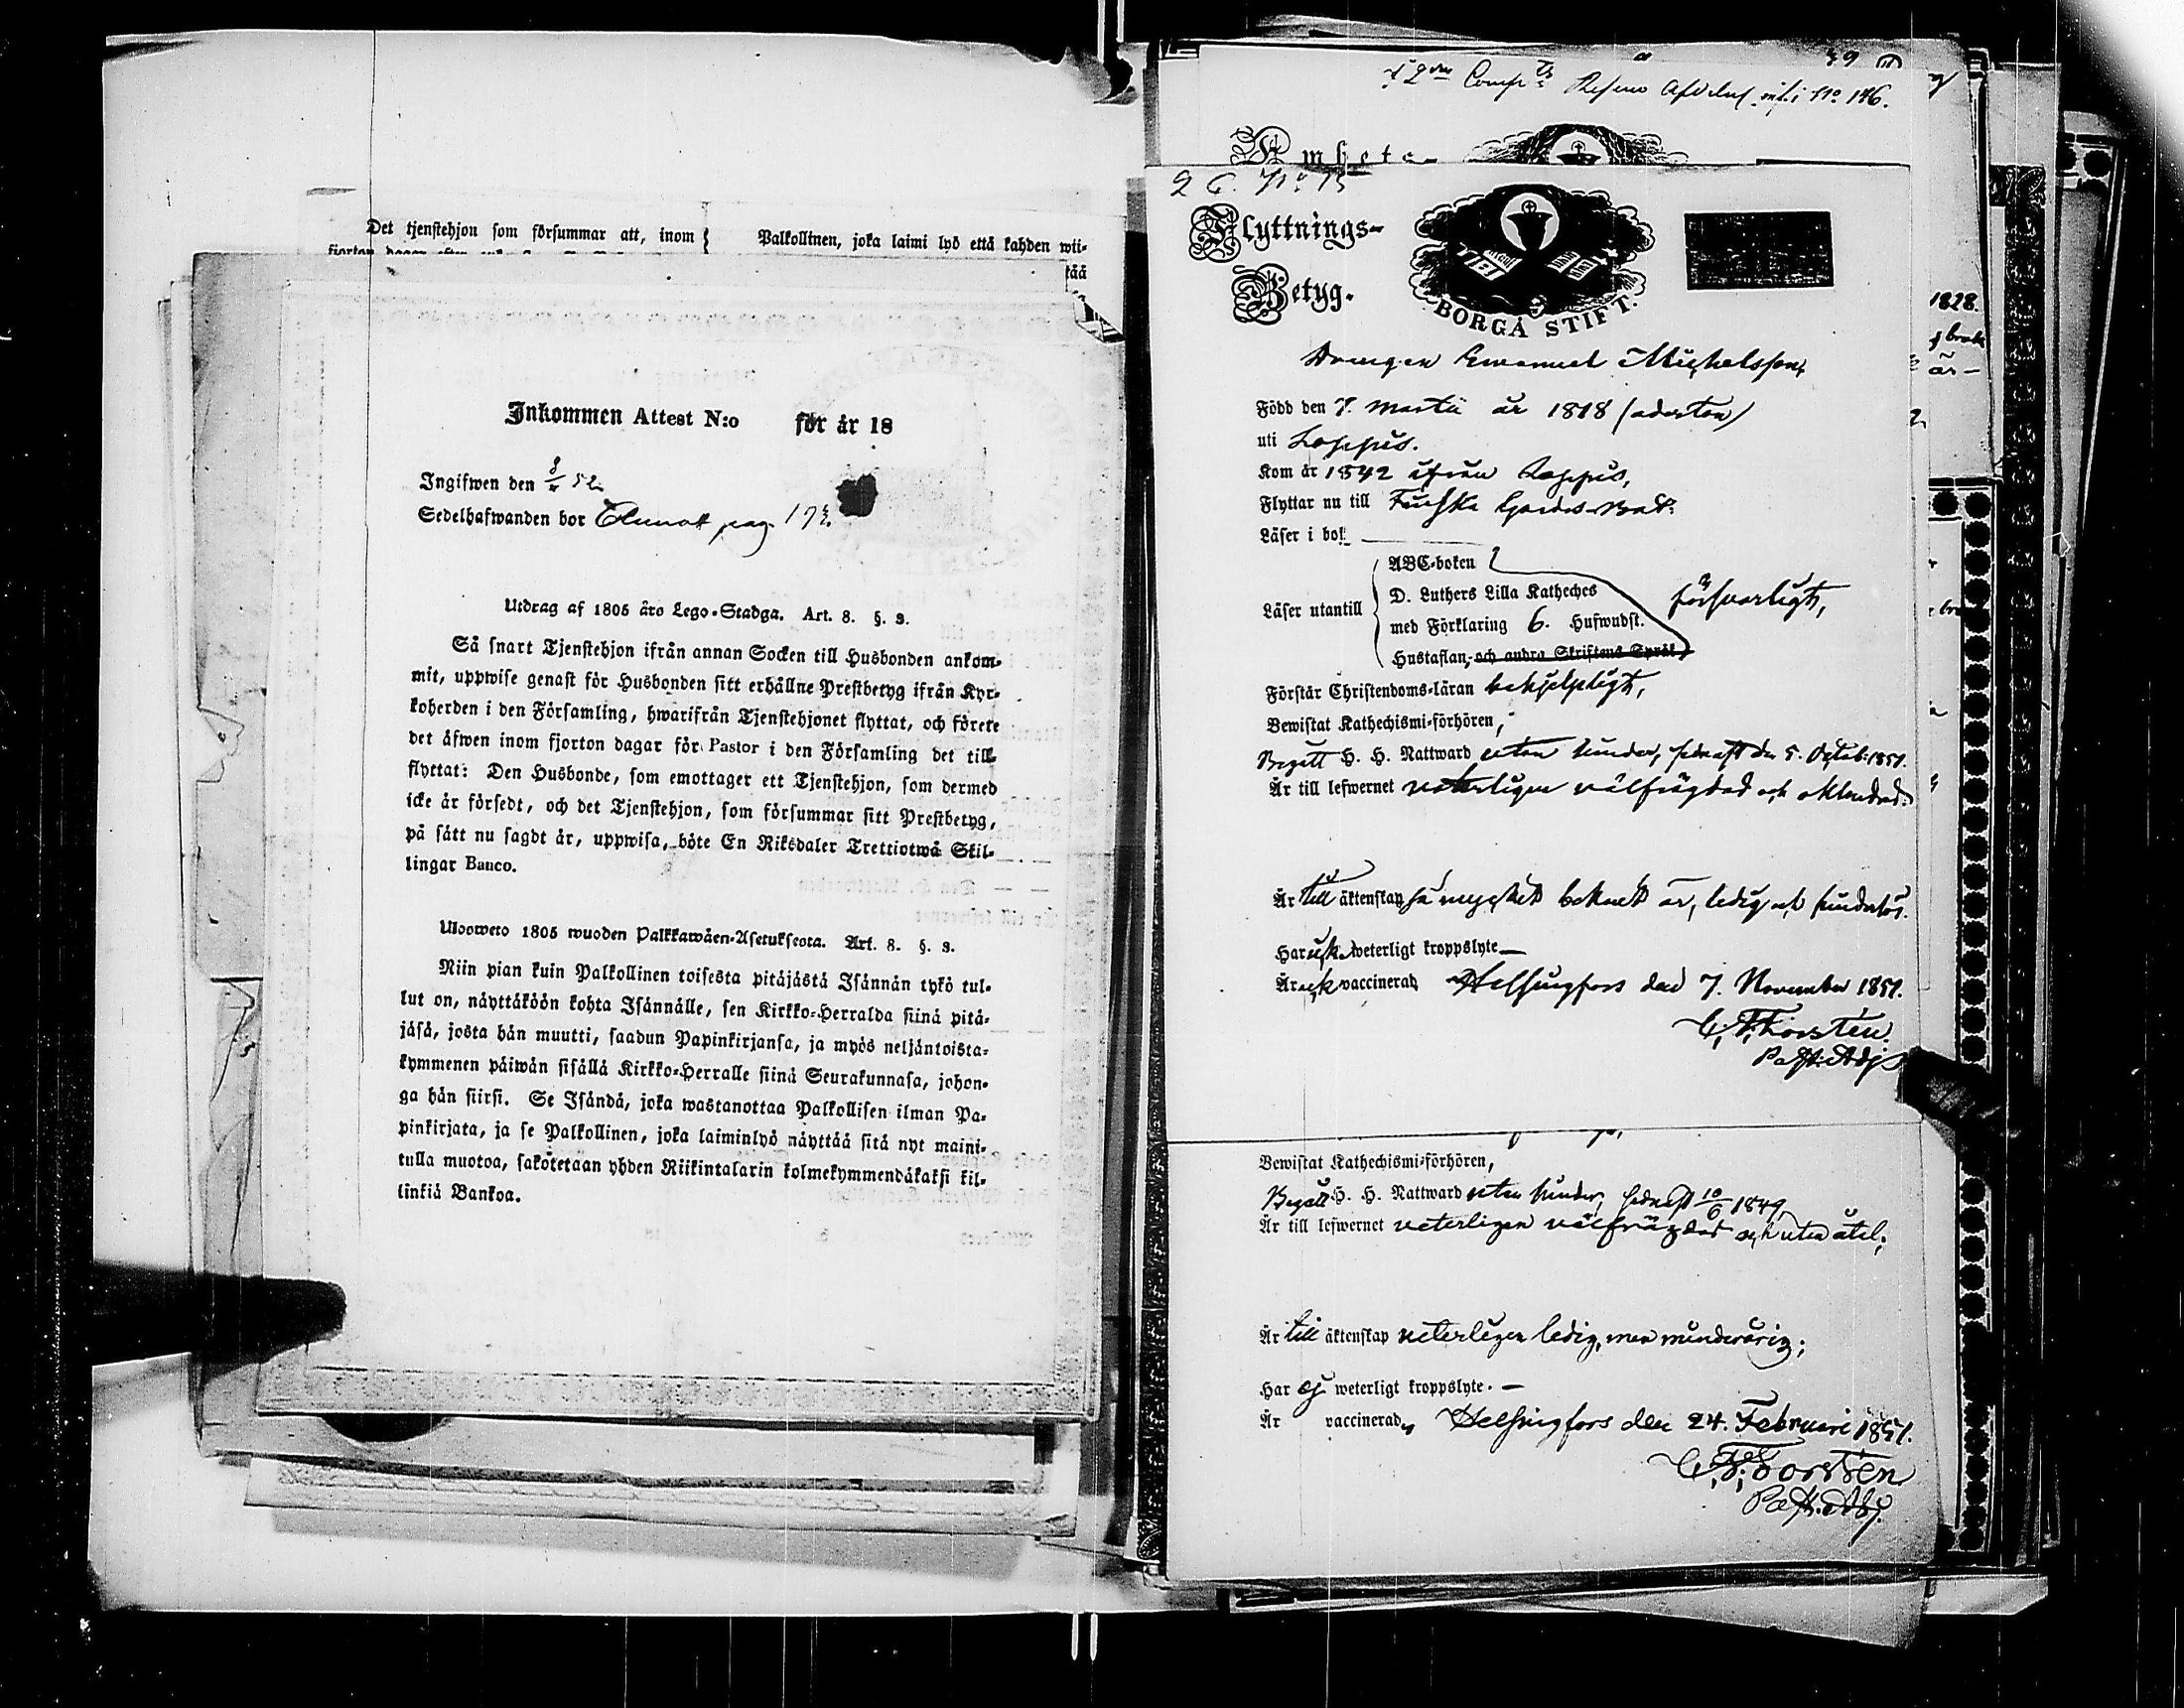 Det tjenstehjon som försummar att, inom
Palkollinen, joka laimi lyö että kahden wii-
tää
Inkommen Attest N:o för år 18
Ingifwen den 52
Sedelhafwanden bor pag. 173.
Utdrag af 1805 åro Lego-Stadga. Art. 8. §. 3.
Så snart Tjenstehjon ifrån annan Socken till Husbonden ankom-
mit, uppwise genast för Husbonden sitt erhållne Prestbetyg ifrån Kyr-
koherden i den Församling, hwarifrån Tjenstehjonet flyttat, och förete
det äfwen inom fjorton dagar för Pastor i den Församling det till-
flyttat: Den Husbonde, som emottager ett Tjenstehjon, som dermed
icke är försedt, och det Tjenstehjon, som försummar sitt Prestbetyg,
på sätt nu sagdt är, uppwisa, böte En Riksdaler Trettiotwå Skil-
lingar Banco.
Ulosweto 1805 wuoden Palkkawäen-Asetuksesta. Art. 8. §. 3.
Niin pian kuin Palkollinen toisesta pitäjästä Isännän tykö tul-
lut on, näyttäköön kohta Isännälle, sen Kirkko-Herralda siinä pitä-
jäsä, josta hän muutti, saadun Papinkirjansa, ja myös neljäntoista-
kymmenen päiwän sisällä Kirkko-Herralle siinä Seurakunnasa, johon-
ga hän siirsi. Se Isändä, joka wastanottaa Palkollisen ilman Pa-
pinkirjata, ja se Palkollinen, joka laiminlyö näyttää sitä nyt maini-
tulla muotoa, sakotetaan yhden Riikintalarin kolmekymmendäkaksi kil-
linkiä Bankoa.
Comp:ts Reserv Afdeln. inf. i No. 146.
No 15
Flyttnings-
Betyg.
BORGÅ STIFT.
Drengen Emanuel Michelsson,
Född den 7. Martii år 1818 (aderton)
uti Loppis.
Kom år 1842 ifrån Loppis,
Flyttar nu till
Läser i bok
Läser utantill
ABC-boken
D. Luthers Lilla Katheches
med Förklaring 6. Hufwudst.
Hustaflan, och andra Skriftens Språk
försvarligt,
Förstår Christendoms-läran behjelpligt,
Bewistat Kathechismi-förhören,
Begått H. H. Nattward utan hinder, sednast den 5. Octob. 1851.
Är till lefwernet veterligen välfrägdad och oklandrad.
Är till äktenskap så mycket bekant är, ledig och hinderlös.
Har ick weterligt kroppslyte
Är ock vaccinerad, Helsingfors den 7. November 1851.
C. F. Forstén.
Past. Adj.
Bewistat Kathechismi-förhören,
Begått H. H. Nattward utan hinder, sednast 10/6 1849,
Är till lefwernet veterligen välfrägdad och utan åtal;
Är till äktenskap veterligen ledig, men minderårig;
Har ej weterligt kroppslyte.
Är vaccinerad, Helsingfors den 24. Februari 1851.
C. F. Forstén
Past. Adj.
1828.